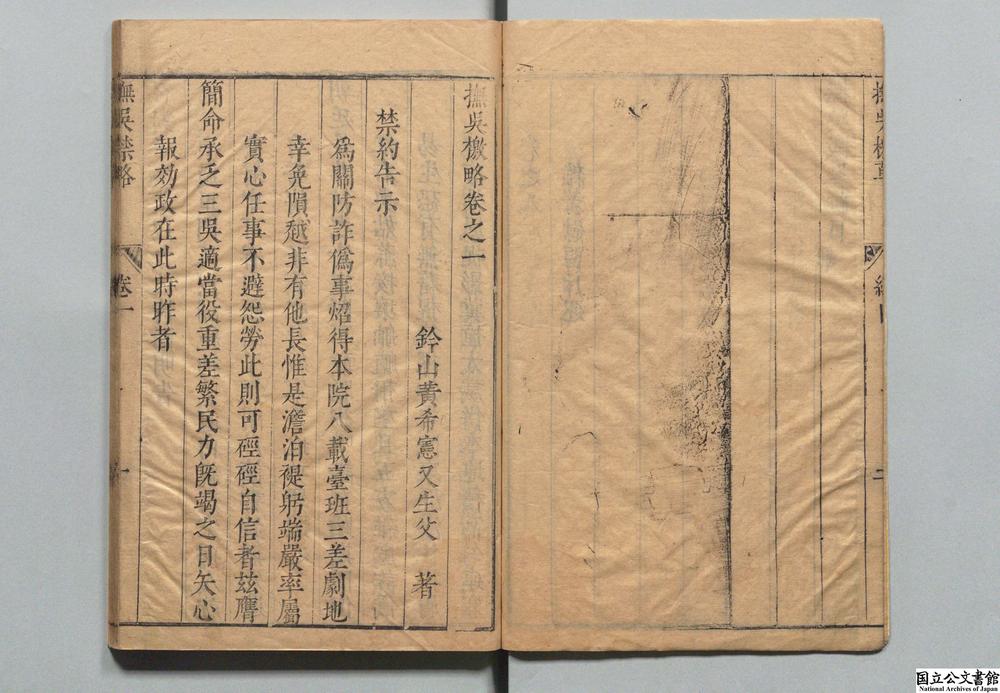 撫吳檄略卷之一
鈐山黃希憲又生父 著
禁約告示
為關防詐偽事炤得本院八載臺班三差劇地
幸免隕越非有他長惟是澹泊禔躬端嚴率屬
實心任事不避怨勞此則可硜硜自信者茲膺
簡命承乏三吳適當役重差繁民力旣竭之日矢心
報効政在此時昨者
撫吳禁略 卷一 一
国立公文書館
National Archives of Japan